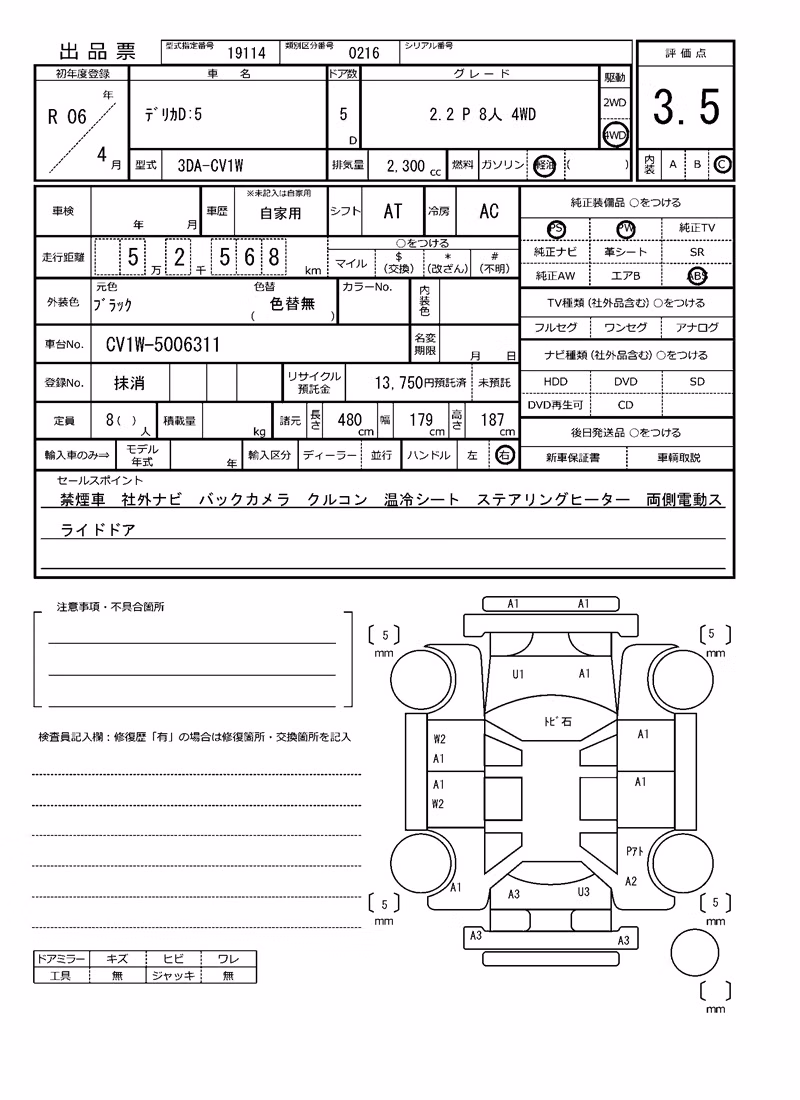 出品票 型式指定番号 19114 類別区分番号 0216 シリアル番号
評価点
3.5
内装 A B C
初年度登録 車名 ドア数 グレード 駆動
R 06 年 4 月 デリカD:5 5 D 2.2 P 8人 4WD 2WD 4WD
型式 3DA-CV1W 排気量 2,300 cc 燃料 ガソリン 軽油 ( )
車検 年 月 車歴 ※未記入は自家用 自家用 シフト AT 冷房 AC
走行距離 5 万 2 千 5 6 8 km ○をつける
マイル $(交換) *(改ざん) #(不明)
外装色 元色 ブラック 色替 ( 色替無 ) カラーNo. 内装色
車台No. CV1W-5006311 名変期限 月 日
登録No. 抹消 リサイクル預託金 13,750円預託済 未預託
定員 8( )人 積載量 kg 諸元 長さ 480cm 幅 179cm 高さ 187cm
輸入車のみ⇒ モデル年式 年 輸入区分 ディーラー 並行 ハンドル 左 右
純正装備品 ○をつける
PS PW 純正TV
純正ナビ 革シート SR
純正AW エアB ABS
TV種類(社外品含む)○をつける
フルセグ ワンセグ アナログ
ナビ種類(社外品含む)○をつける
HDD DVD SD
DVD再生可 CD
後日発送品 ○をつける
新車保証書 車輌取説
セールスポイント
禁煙車 社外ナビ バックカメラ クルコン 温冷シート ステアリングヒーター 両側電動ス
ライドドア
注意事項・不具合箇所
検査員記入欄:修復歴「有」の場合は修復箇所・交換箇所を記入
ドアミラー キズ ヒビ ワレ
工具 無 ジャッキ 無
A1 A1
5 mm 5 mm
U1 A1
トビ石
W2 A1
A1 A1
A1
W2
Pアト
A1 A3 U3 A2
5 mm 5 mm
A3 A3
mm